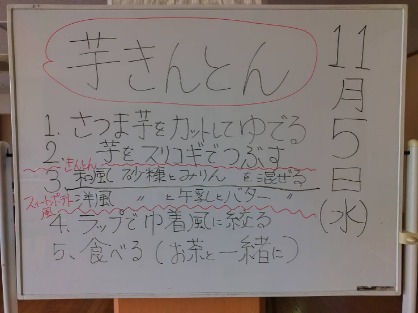 芋きんとん
11月5日(水)
1. さつま芋をカットしてゆでる
2. 芋をスリコギでつぶす
きんとん
3. 和風 砂糖とみりん を混ぜる
スイートポテト風
洋風 〃 と牛乳とバター 〃
4. ラップで巾着風に絞る
5. 食べる(お茶と一緒に)